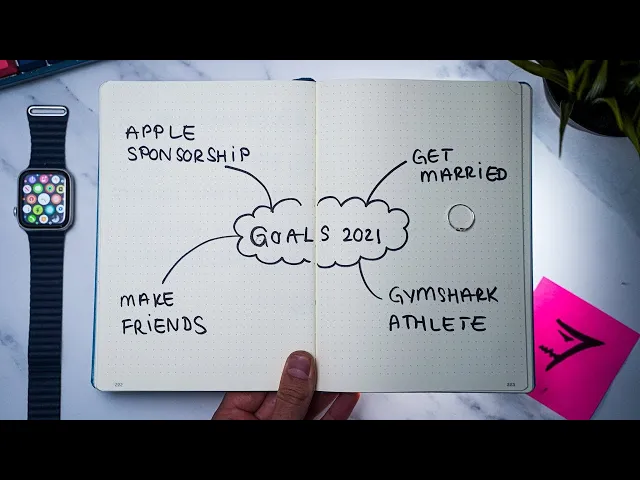 APPLE
SPONSORSHiP
GET
MARRiED
GOALS 2021
MAKE
FRiENDS
GYMSHARK
ATHLETE
222
223